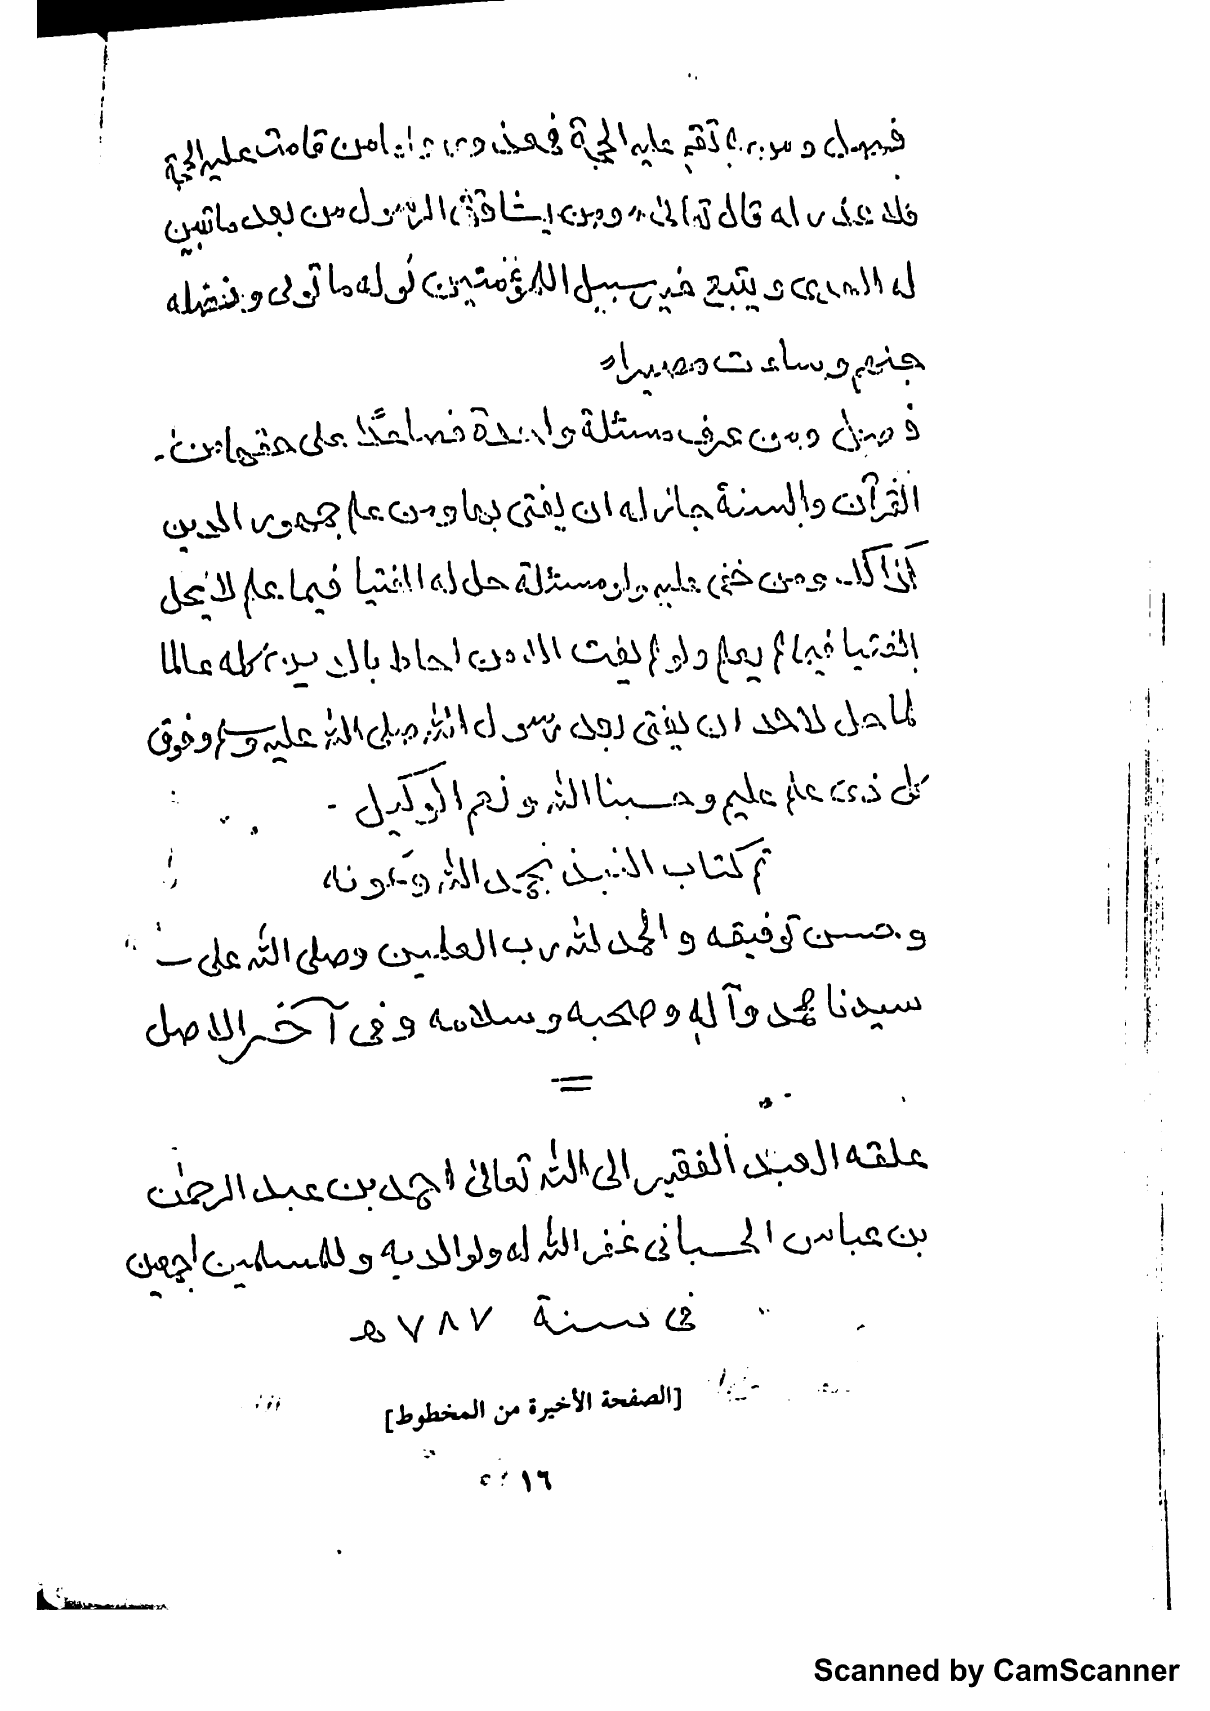 فصل ومن لم تقم عليه الحجة فمعذور واما من قامت عليه الحجة
فلا عذر له قال تعالى ومن يشاقق الرسول من بعد ما تبين
له الهدى ويتبع غير سبيل المؤمنين نوله ما تولى ونصله
جهنم وساءت مصيرا
فصل ومن عرف مسئلة واحدة فصاعدًا على حقها من
القرآن والسنة جاز له ان يفتى بها ومن علم جمهور الدين
كذلك ومن خفى عليه ولو مسئلة حل له الفتيا فيما علم لا يحل
الفتيا فيما لم يعلم ولو لم يفت الا من احاط بالدين كله عالما
لما حل لاحد ان يفتى بعد رسول الله صلى الله عليه وسلم وفوق
كل ذى علم عليم وحسبنا الله ونعم الوكيل -
تم كتاب النبذ بحمد الله وعونه
وحسن توفيقه والحمد لله رب العلمين وصلى الله على
سيدنا محمد وآله وصحبه وسلامه وفى آخر الاصل
=
علقه العبد الفقير الى الله تعالى احمد بن عبد الرحمن
بن عباس الحسبانى غفر الله له ولوالديه وللمسلمين اجمعين
فى سنة ٧٨٧ هـ
[الصفحة الأخيرة من المخطوط]
١٦
Scanned by CamScanner